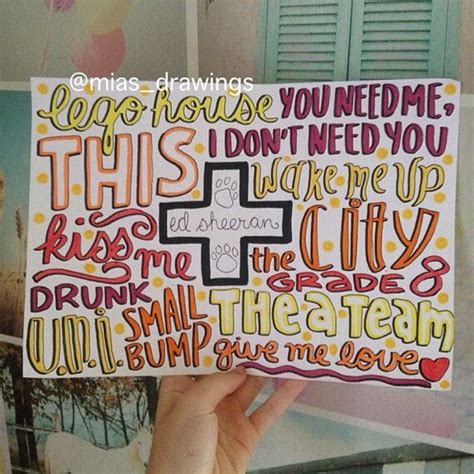 @mias_drawings
lego house
YOU NEED ME,
I DON'T NEED YOU
THIS
wake me up
ed sheeran
kiss me
the City
GRADE 8
DRUNK
U.N.I.
SMALL BUMP
THE A TEAM
give me love